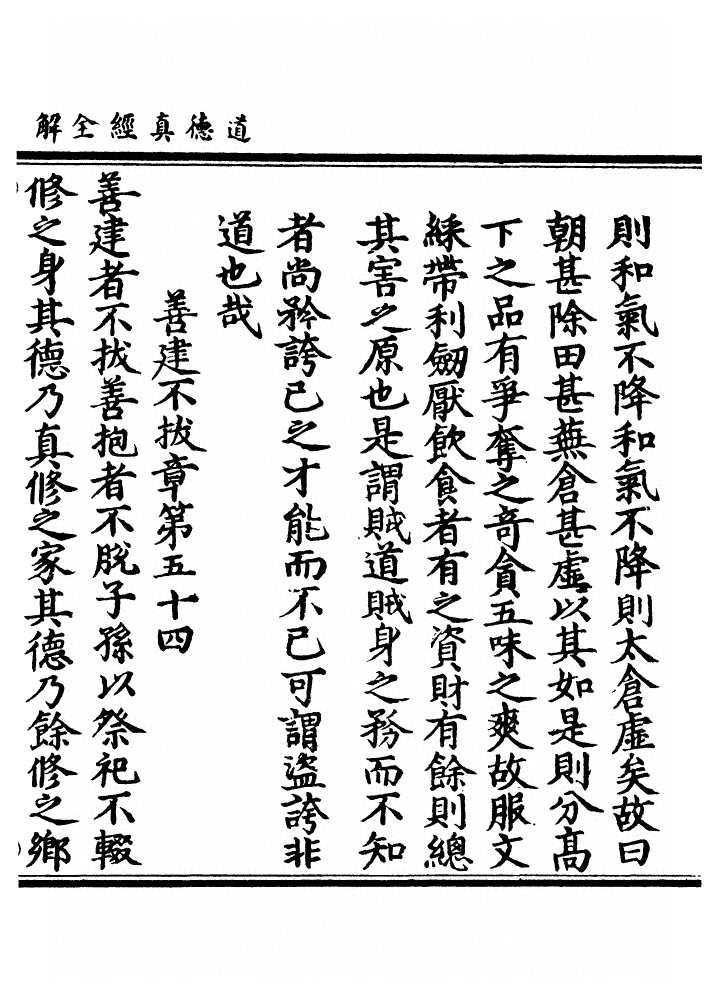 道德真經全解
則和氣不降和氣不降則太倉虛矣故曰
朝甚除田甚蕪倉甚虛以其如是則分高
下之品有爭奪之奇貪五味之爽故服文
綵帶利劒厭飲食者有之資財有餘則總
其害之原也是謂賊道賊身之務而不知
者尚矜誇已之才能而不已可謂盜誇非
道也哉
善建不拔章第五十四
善建者不拔善抱者不脫子孫以祭祀不輟
修之身其德乃真修之家其德乃餘修之鄉